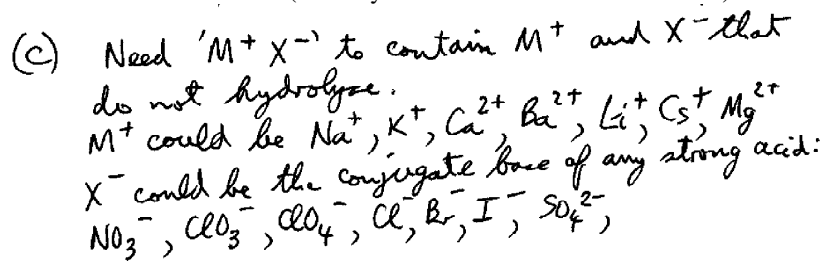 (c) Need 'M⁺ X⁻' to contain M⁺ and X⁻ that
do not hydrolyze.
M⁺ could be Na⁺, K⁺, Ca²⁺, Ba²⁺, Li⁺, Cs⁺, Mg²⁺
X⁻ could be the conjugate base of any strong acid:
NO₃⁻, ClO₃⁻, ClO₄⁻, Cl⁻, Br⁻, I⁻, SO₄²⁻,